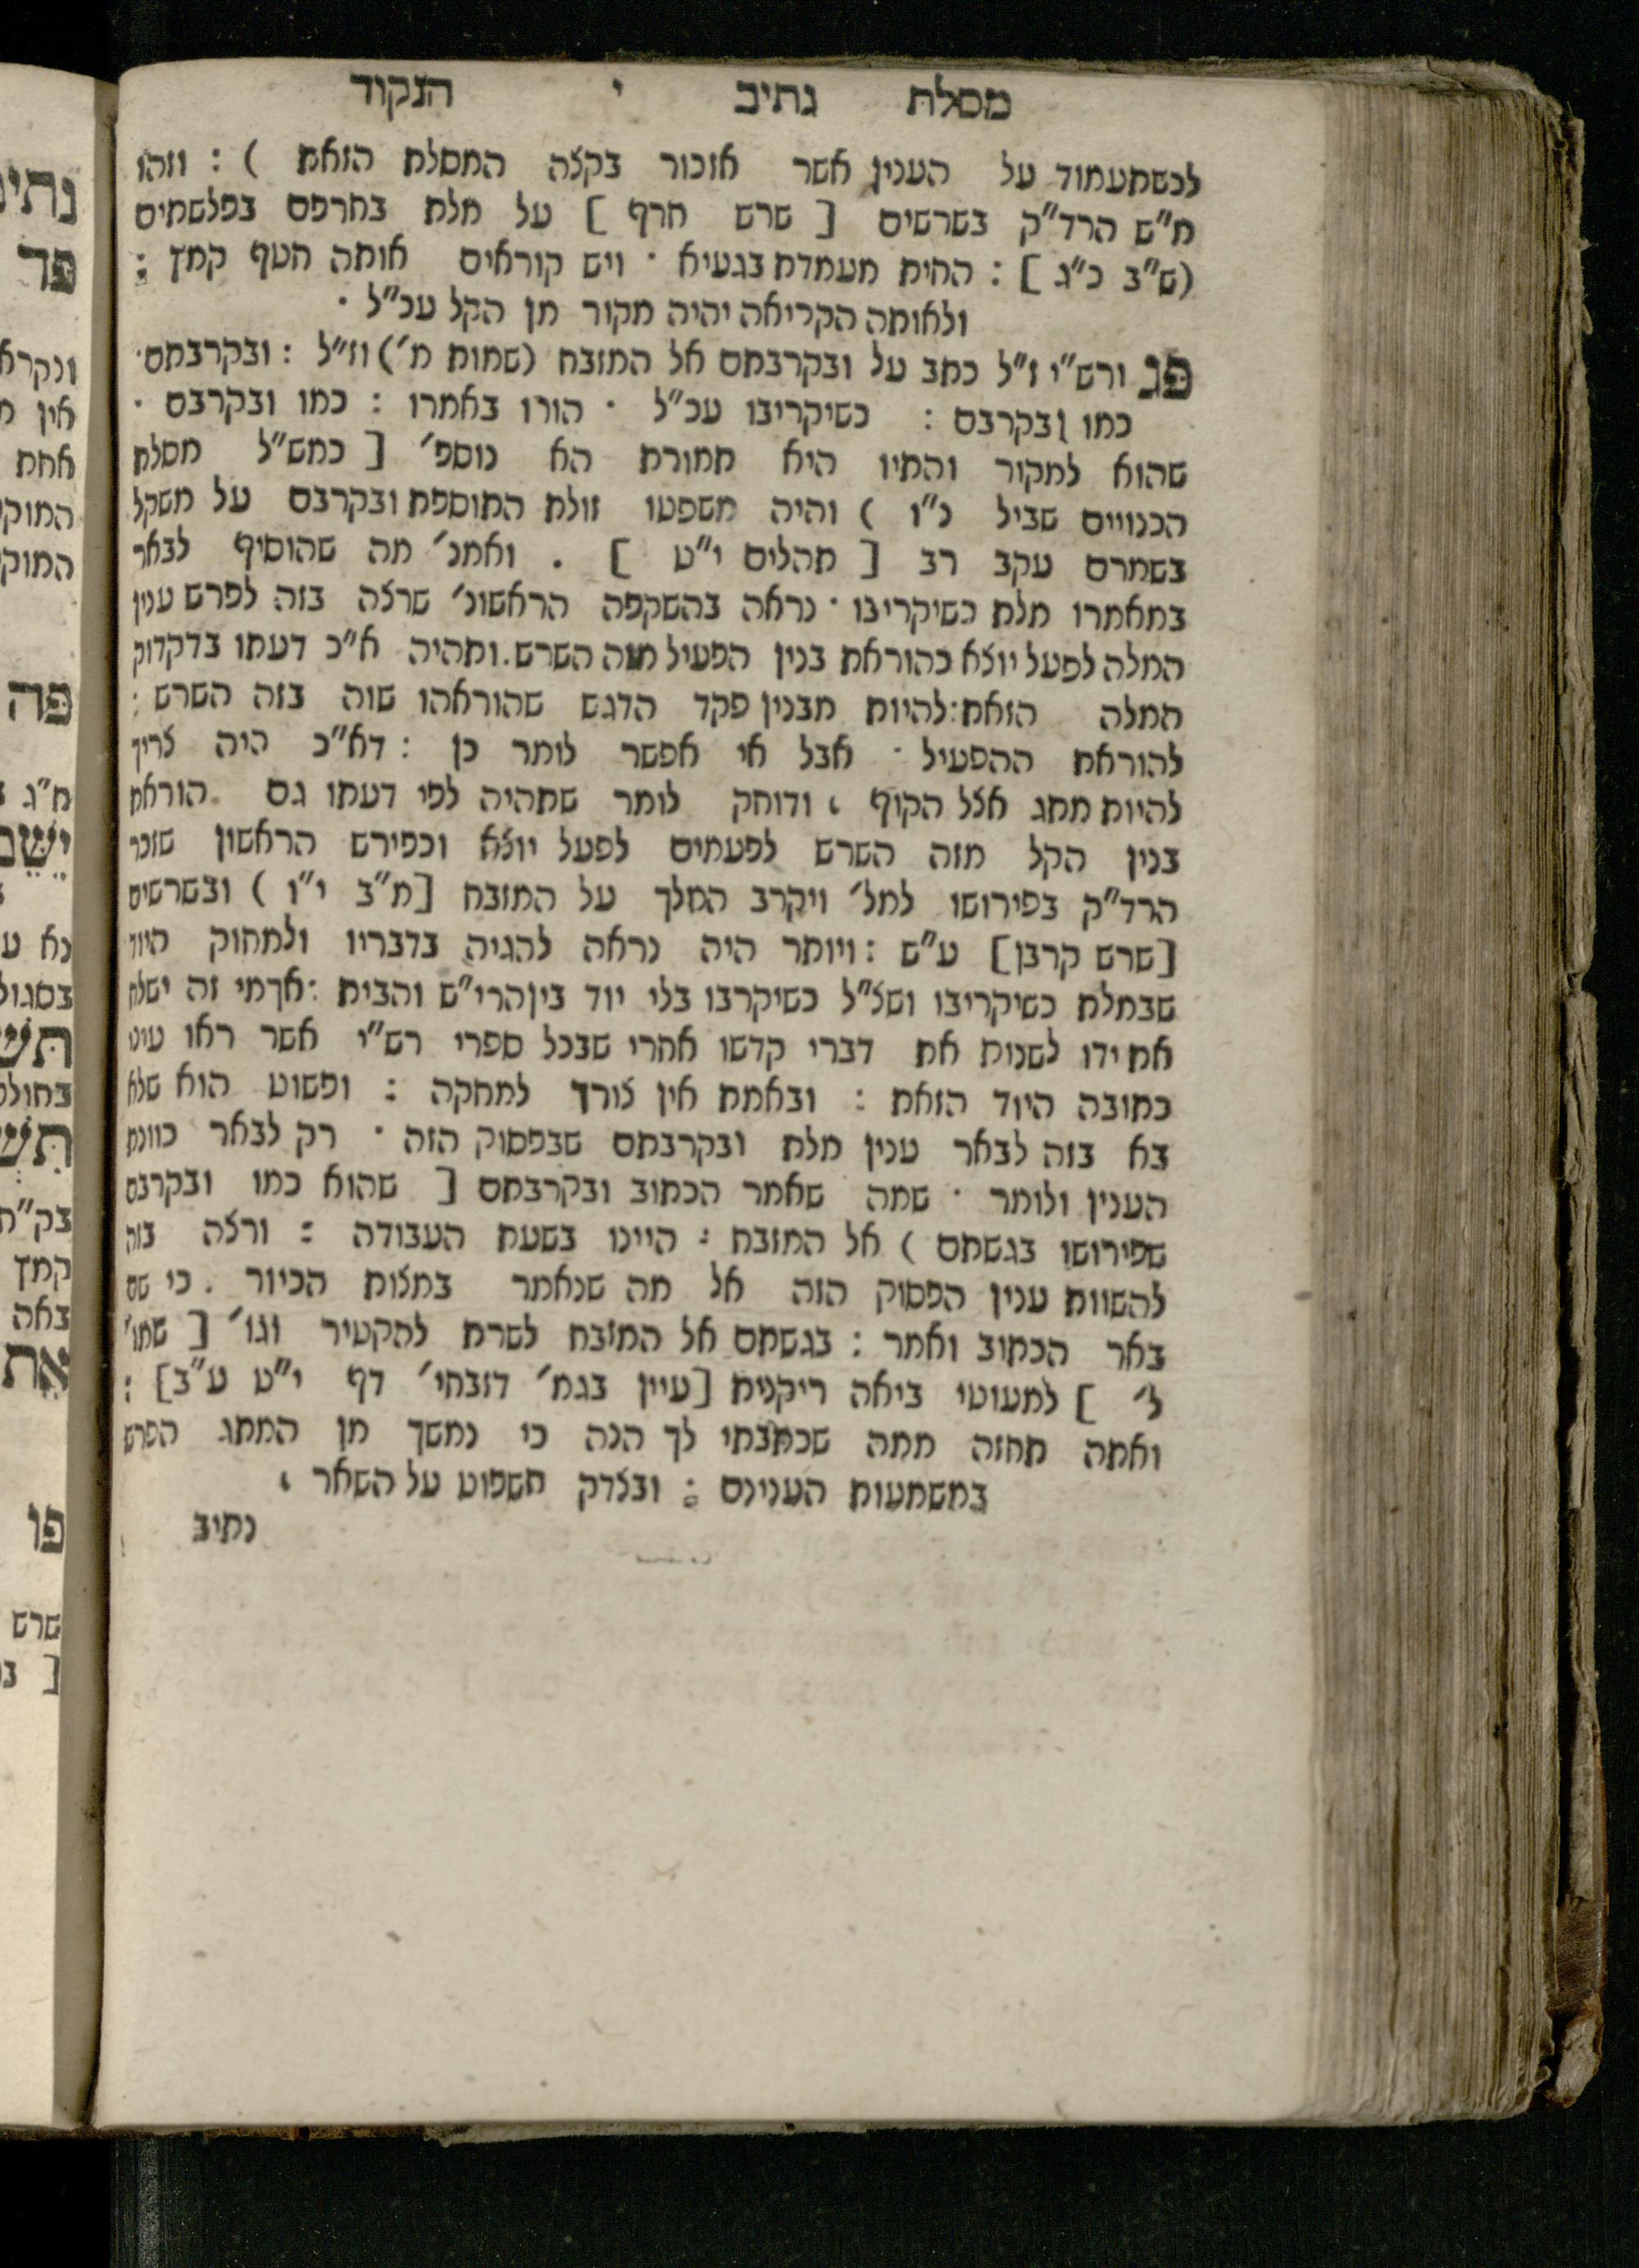 מסלת נתיב י הנקוד
לכשתעמוד על הענין אשר אזכור בקצה המסלת הזאת ) : וזהו
מ"ש הרד"ק בשרשים [ שרש חרף ] על מלת בחרפם בפלשתים
(ש"ב כ"ג ] : החית מעמדת בגעיא · ויש קוראים אותה חטף קמץ :
ולאותה הקריאה יהיה מקור מן הקל עכ"ל ·
פג ורש"י ז"ל כתב על ובקרבתם אל המזבח (שמות מ') וז"ל : ובקרבתם·
כמו ובקרבם : כשיקריבו עכ"ל · הורו באמרו : כמו ובקרבם ·
שהוא למקור והתיו היא תמורת הא נוספ' [ כמש"ל מסלת
הכנויים שביל נ"ו ) והיה משפטו זולת התוספת ובקרבם על משקל
בשמרם עקב רב [ תהלים י"ט ] . ואמנ' מה שהוסיף לבאר
במאמרו מלת כשיקריבו · נראה בהשקפה הראשונ' שרצה בזה לפרש ענין
המלה לפעל יוצא כהוראת בנין הפעיל מזה השרש. ותהיה א"כ דעתו בדקדוק
המלה הזאת: להיות מבנין פקד הדגש שהוראהו שוה בזה השרש :
להוראת ההפעיל · אבל אי אפשר לומר כן : דא"כ היה צריך
להיות מתג אצל הקוף , ודוחק לומר שתהיה לפי דעתו גם הוראת
בנין הקל מזה השרש לפעמים לפעל יוצא וכפירש הראשון שזכר
הרד"ק בפירושו למל' ויקרב המלך על המזבח [מ"ב י"ו ) ובשרשים
[שרש קרבן] ע"ש : ויותר היה נראה להגיה בדבריו ולמחוק היוד
שבמלת כשיקריבו ושצ"ל כשיקרבו בלי יוד בין הרי"ש והבית : אך מי זה ישלח
את ידו לשנות את דברי קדשו אחרי שבכל ספרי רש"י אשר ראו עינו
כתובה היוד הזאת : ובאמת אין צורך למחקה : ופשוט הוא שלא
בא בזה לבאר ענין מלת ובקרבתם שבפסוק הזה · רק לבאר כוונת
הענין ולומר · שמה שאמר הכתוב ובקרבתם [ שהוא כמו ובקרבם
שפירושו בגשתם ) אל המזבח : היינו בשעת העבודה : ורצה בזה
להשוות ענין הפסוק הזה אל מה שנאמר במצות הכיור . כי שם
באר הכתוב ואמר : בגשתם אל המזבח לשרת להקטיר וגו' [ שמו'
ל' ] למעוטי ביאה ריקנית [עיין בגמ' דזבחי' דף י"ט ע"ב] :
ואתה תחזה ממה שכתבתי לך הנה כי נמשך מן המתג הפרש
במשמעות הענינם : ובצדק תשפוט על השאר ,
נתיב